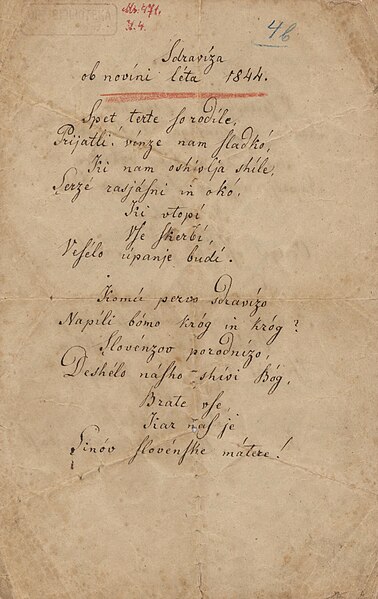 Ms. 471.
N. 4.
4b
Sdravíza
ob novíni léta 1844.
Spet terte so rodile,
Prijatli! vínze nam sladkó,
Ki nam oshívlja shile,
Serzé rasjásni in oko,
Ki vtopí
Vse skerbí,
Vesélo úpanje budí.
Komú pervo sdravízo
Napíli bómo króg in króg?
Slovénzov porodnízo,
Deshélo násho shívi Bóg,
Brate vse,
Kar nas je
Sinóv slovénske mátere!